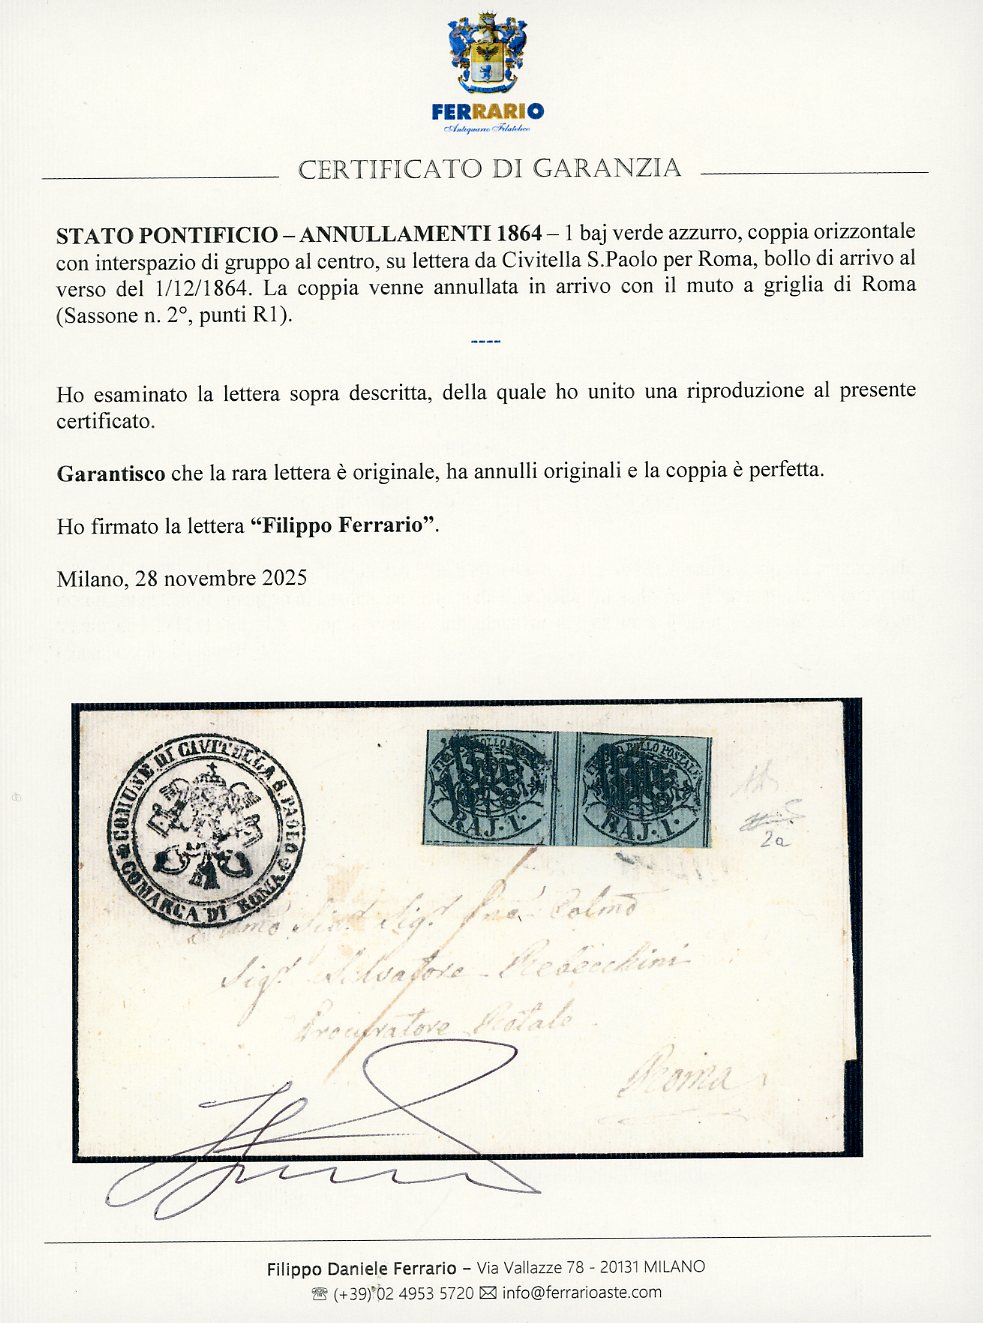 FERRARIO
Antiquario Filatelico
CERTIFICATO DI GARANZIA
STATO PONTIFICIO – ANNULLAMENTI 1864 – 1 baj verde azzurro, coppia orizzontale
con interspazio di gruppo al centro, su lettera da Civitella S.Paolo per Roma, bollo di arrivo al
verso del 1/12/1864. La coppia venne annullata in arrivo con il muto a griglia di Roma
(Sassone n. 2°, punti R1).
----
Ho esaminato la lettera sopra descritta, della quale ho unito una riproduzione al presente
certificato.
Garantisco che la rara lettera è originale, ha annulli originali e la coppia è perfetta.
Ho firmato la lettera “Filippo Ferrario”.
Milano, 28 novembre 2025
COMUNE DI CIVITELLA S. PAOLO
COMARCA DI ROMA
BOLLO POSTALE
BAJ. 1.
BOLLO POSTALE
BAJ. 1.
2a
Sig.r Salvatore Rebecchini
Procuratore Rotale
Roma
Filippo Daniele Ferrario – Via Vallazze 78 - 20131 MILANO
☏ (+39) 02 4953 5720 ✉ info@ferrarioaste.com